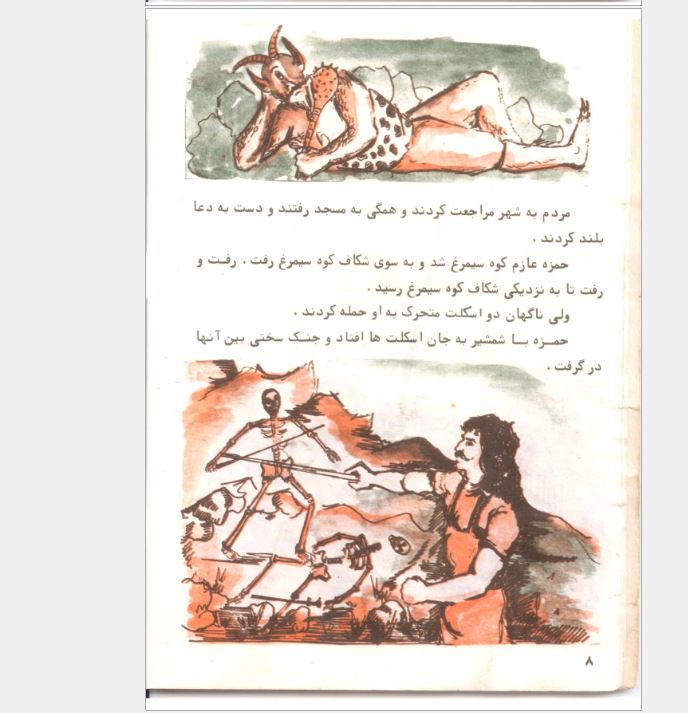 مردم به شهر مراجعت کردند و همگی به مسجد رفتند و دست به دعا
بلند کردند .
حمزه عازم کوه سیمرغ شد و به سوی شکاف کوه سیمرغ رفت . رفت و
رفت تا به نزدیکی شکاف کوه سیمرغ رسید .
ولی ناگهان دو اسکلت متحرک به او حمله کردند .
حمــزه بــا شمشیر به جان اسکلت ها افتاد و جنـک سختی بین آنها
در گرفت .
۸